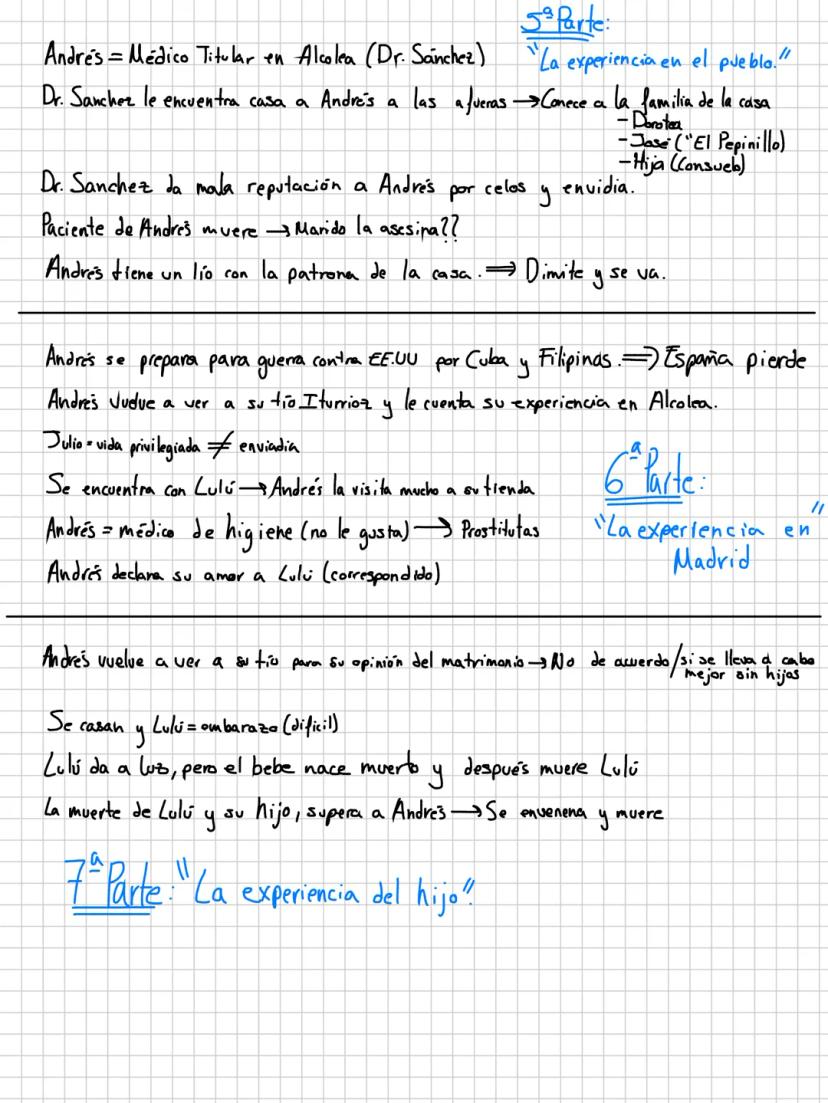 5ª Parte:
"La experiencia en el pueblo."
Andrés = Médico Titular en Alcolea (Dr. Sánchez)
Dr. Sanchez le encuentra casa a Andrés a las afueras → Conece a la familia de la casa
- Dorotea
- José ("El Pepinillo)
- Hija (Consuelo)
Dr. Sanchez da mala reputación a Andrés por celos y envidia.
Paciente de Andrés muere → Marido la asesina??
Andrés tiene un lío con la patrona de la casa. ⇒ Dimite y se va.
Andrés se prepara para guerra contra EE.UU por Cuba y Filipinas. ⇒ España pierde
Andrés Vuelve a ver a su tío Iturrioz y le cuenta su experiencia en Alcolea.
Julio = vida privilegiada ≠ enviadia
Se encuentra con Lulú → Andrés la visita mucho a su tienda
Andrés = médico de higiene (no le gusta) → Prostitutas
Andrés declara su amor a Lulú (correspondido)
6ª Parte:
"La experiencia en"
Madrid
Andrés vuelve a ver a su tío para su opinión del matrimonio → No de acuerdo/si se lleva a cabo
mejor sin hijos
Se casan y Lulú = embarazo (dificil)
Lulú da a luz, pero el bebe nace muerto y después muere Lulú
La muerte de Lulú y su hijo, supera a Andrés → Se envenena y muere
7ª Parte: "La experiencia del hijo".